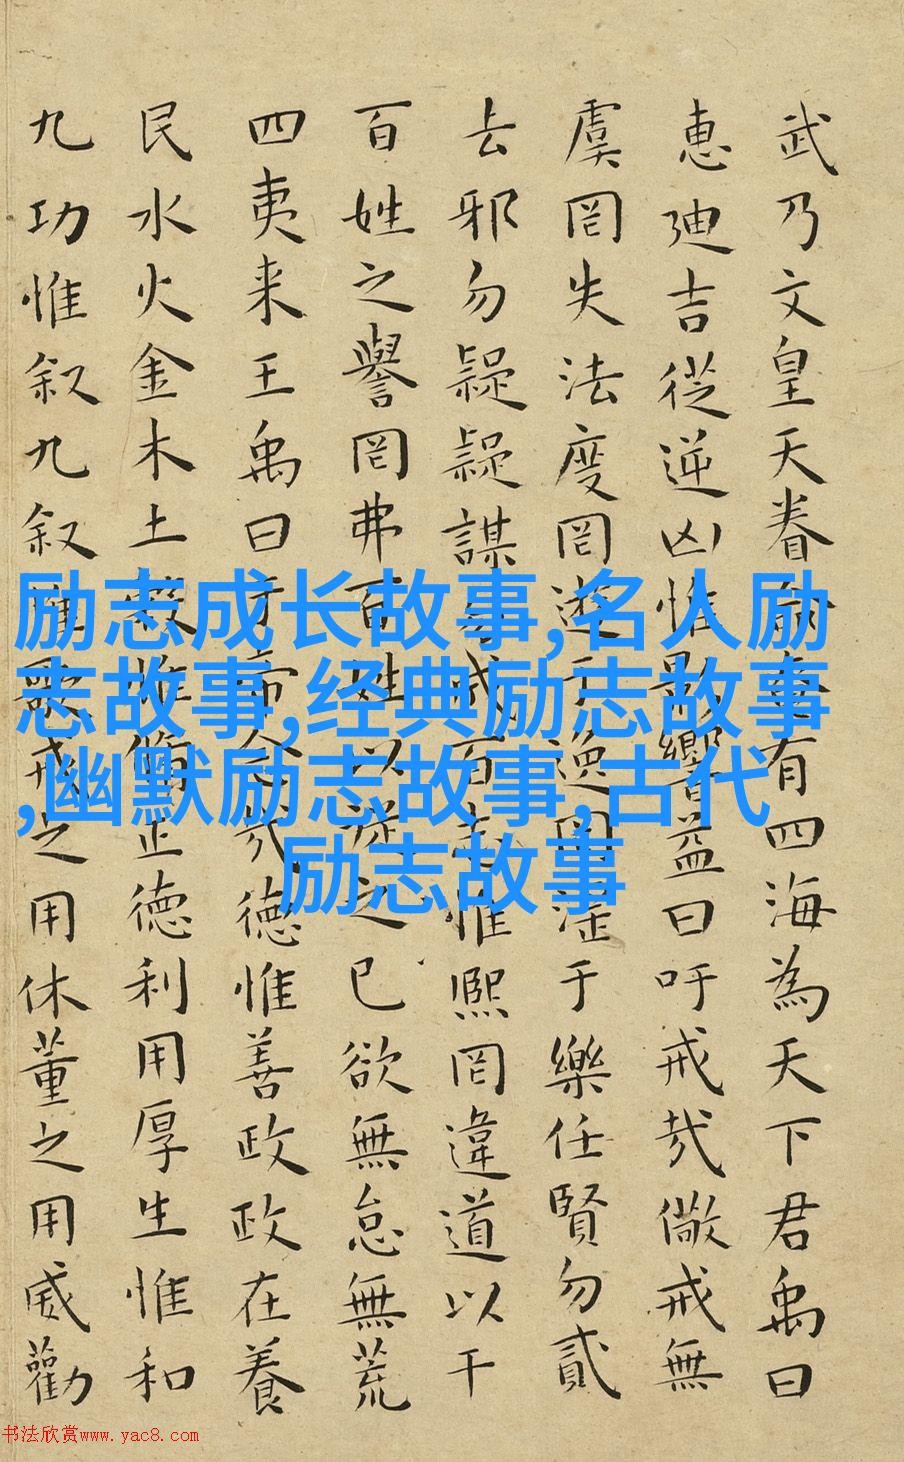 武乃文皇天眷命奄有四海為天下君禹曰
惠迪吉從逆凶惟影響益曰吁戒哉儆戒無
虞罔失法度罔遊于逸罔淫于樂任賢勿貳
去邪勿疑疑謀勿成百志惟熙罔違道以干
百姓之譽罔弗百姓以從之已欲無怠無荒
四夷来王禹曰於帝念哉德惟善政政在養
民水火金木土穀惟脩正德利用厚生惟和
九功惟叙九叙惟歌戒之用休董之用威勸
励志成长故事,名人励
志故事,经典励志故事
,幽默励志故事,古代
励志故事
书法欣赏www.yac8.com